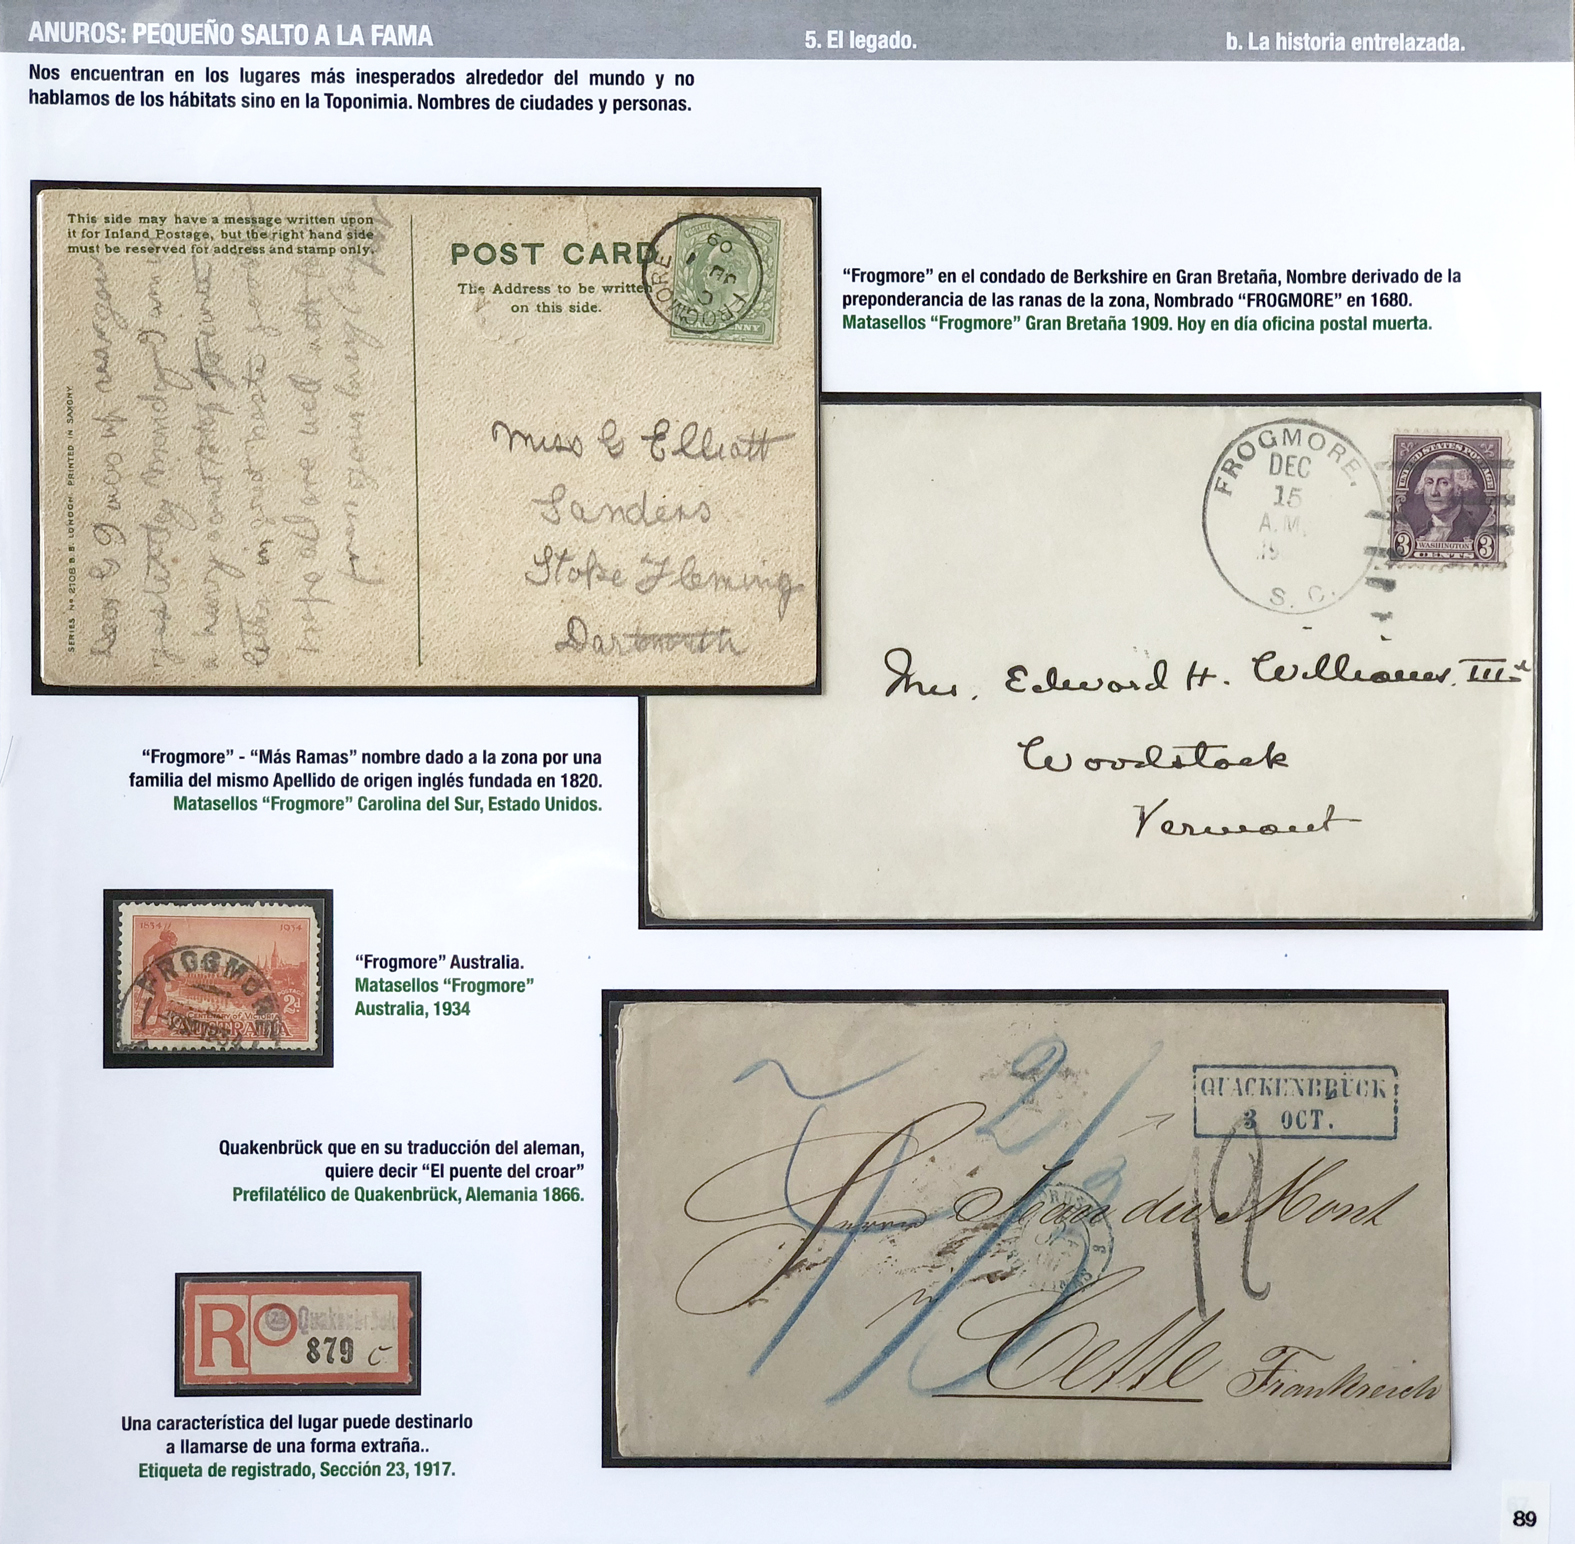 ANUROS: PEQUEÑO SALTO A LA FAMA
5. El legado.
b. La historia entrelazada.
Nos encuentran en los lugares más inesperados alrededor del mundo y no
hablamos de los hábitats sino en la Toponimia. Nombres de ciudades y personas.
This side may have a message written upon
it for Inland Postage, but the right hand side
must be reserved for address and stamp only.
POST CARD
The Address to be written
on this side.
FROGMORE
C
JU 1
09
SERIES No 2106 B. B. LONDON. PRINTED IN SAXONY
Miss G Elliott
Sanders
Stoke Fleming
Dartmouth
"Frogmore" en el condado de Berkshire en Gran Bretaña, Nombre derivado de la
preponderancia de las ranas de la zona, Nombrado "FROGMORE" en 1680.
Matasellos "Frogmore" Gran Bretaña 1909. Hoy en día oficina postal muerta.
FROGMORE,
DEC
15
A.M.
19
S. C.
UNITED STATES POSTAGE
3 WASHINGTON 3
CENTS
Edward H. Williams IIId
Woodstock
Vermont
"Frogmore" - "Más Ramas" nombre dado a la zona por una
familia del mismo Apellido de origen inglés fundada en 1820.
Matasellos "Frogmore" Carolina del Sur, Estado Unidos.
1834 1934
FROGMORE
POSTAGE
2d
Centenary of Victoria
AUSTRALIA
"Frogmore" Australia.
Matasellos "Frogmore"
Australia, 1934
QUACKENBRÜCK
3 OCT.
Herrn Jean du Mont
Cette
Frankreich
Quakenbrück que en su traducción del aleman,
quiere decir "El puente del croar"
Prefilatélico de Quakenbrück, Alemania 1866.
R
Quakenbrück
879 c
Una característica del lugar puede destinarlo
a llamarse de una forma extraña..
Etiqueta de registrado, Sección 23, 1917.
89